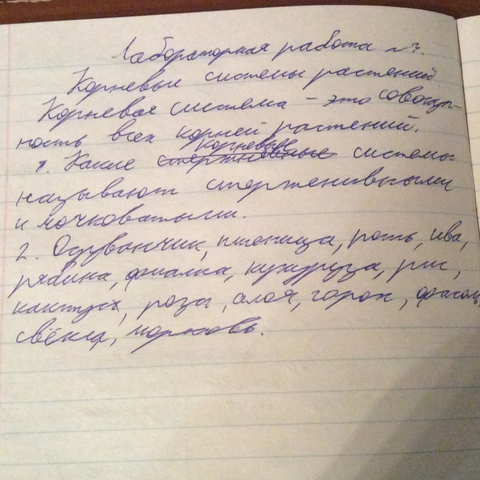 Лабораторная работа №7.
Корневые системы растений
Корневая система – это совокуп-
ность всех корней растений.
1. Какие корневые системы
называют стержневыми
и мочковатыми.
2. Одуванчик, пшеница, рожь, ива,
рябина, фиалка, кукуруза, рис,
кактус, роза, алоя, горох, фасоль
свёкла, морковь.